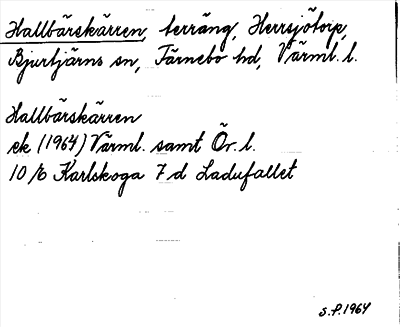 Hallbärskärren, terräng, Herrsjötorp,
Bjurtjärns sn, Färnebo hd, Värml. l.
Hallbärskärren
ek (1964) Värml. samt Ör. l.
10/6 Karlskoga 7 d Ladufallet
S.P. 1964